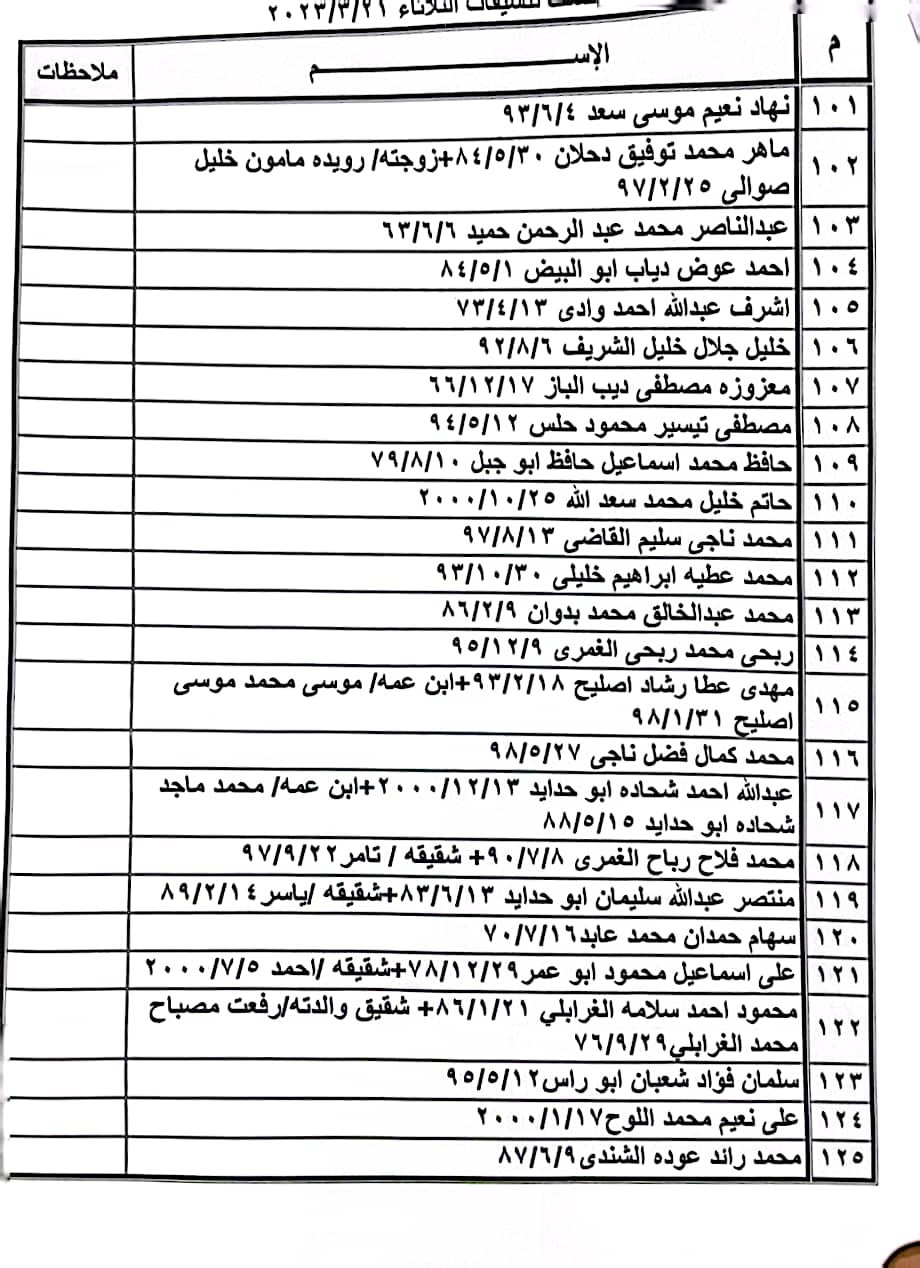 تنسيقات الثلاثاء ٢٠٢٣/٣/٢١
م الإســـــــم ملاحظات
١٠١ نهاد نعيم موسى سعد ٩٣/٦/٤
١٠٢ ماهر محمد توفيق دحلان ٨٤/٥/٣٠+زوجته/ رويده مامون خليل
صوالى ٩٧/٢/٢٥
١٠٣ عبدالناصر محمد عبد الرحمن حميد ٦٣/٦/٦
١٠٤ احمد عوض دياب ابو البيض ٨٤/٥/١
١٠٥ اشرف عبدالله احمد وادى ٧٣/٤/١٣
١٠٦ خليل جلال خليل الشريف ٩٢/٨/٦
١٠٧ معزوزه مصطفى ديب الباز ٦٦/١٢/١٧
١٠٨ مصطفى تيسير محمود حلس ٩٤/٥/١٢
١٠٩ حافظ محمد اسماعيل حافظ ابو جبل ٧٩/٨/١٠
١١٠ حاتم خليل محمد سعد الله ٢٠٠٠/١٠/٢٥
١١١ محمد ناجى سليم القاضى ٩٧/٨/١٣
١١٢ محمد عطيه ابراهيم خليلى ٩٣/١٠/٣٠
١١٣ محمد عبدالخالق محمد بدوان ٨٦/٢/٩
١١٤ ربحى محمد ربحى الغمرى ٩٥/١٢/٩
١١٥ مهدى عطا رشاد اصليح ٩٣/٢/١٨+ابن عمه/ موسى محمد موسى
اصليح ٩٨/١/٣١
١١٦ محمد كمال فضل ناجى ٩٨/٥/٢٧
١١٧ عبدالله احمد شحاده ابو حدايد ٢٠٠٠/١٢/١٣+ابن عمه/ محمد ماجد
شحاده ابو حدايد ٨٨/٥/١٥
١١٨ محمد فلاح رباح الغمرى ٩٠/٧/٨+ شقيقه / تامر٩٧/٩/٢٢
١١٩ منتصر عبدالله سليمان ابو حدايد ٨٣/٦/١٣+شقيقه /ياسر٨٩/٢/١٤
١٢٠ سهام حمدان محمد عابد٧٠/٧/١٦
١٢١ على اسماعيل محمود ابو عمر٧٨/١٢/٢٩+شقيقه /احمد ٢٠٠٠/٧/٥
١٢٢ محمود احمد سلامه الغرابلي ٨٦/١/٢١+ شقيق والدته/رفعت مصباح
محمد الغرابلي٧٦/٩/٢٩
١٢٣ سلمان فؤاد شعبان ابو راس٩٥/٥/١٢
١٢٤ على نعيم محمد اللوح٢٠٠٠/١/١٧
١٢٥ محمد رائد عوده الشندى٨٧/٦/٩